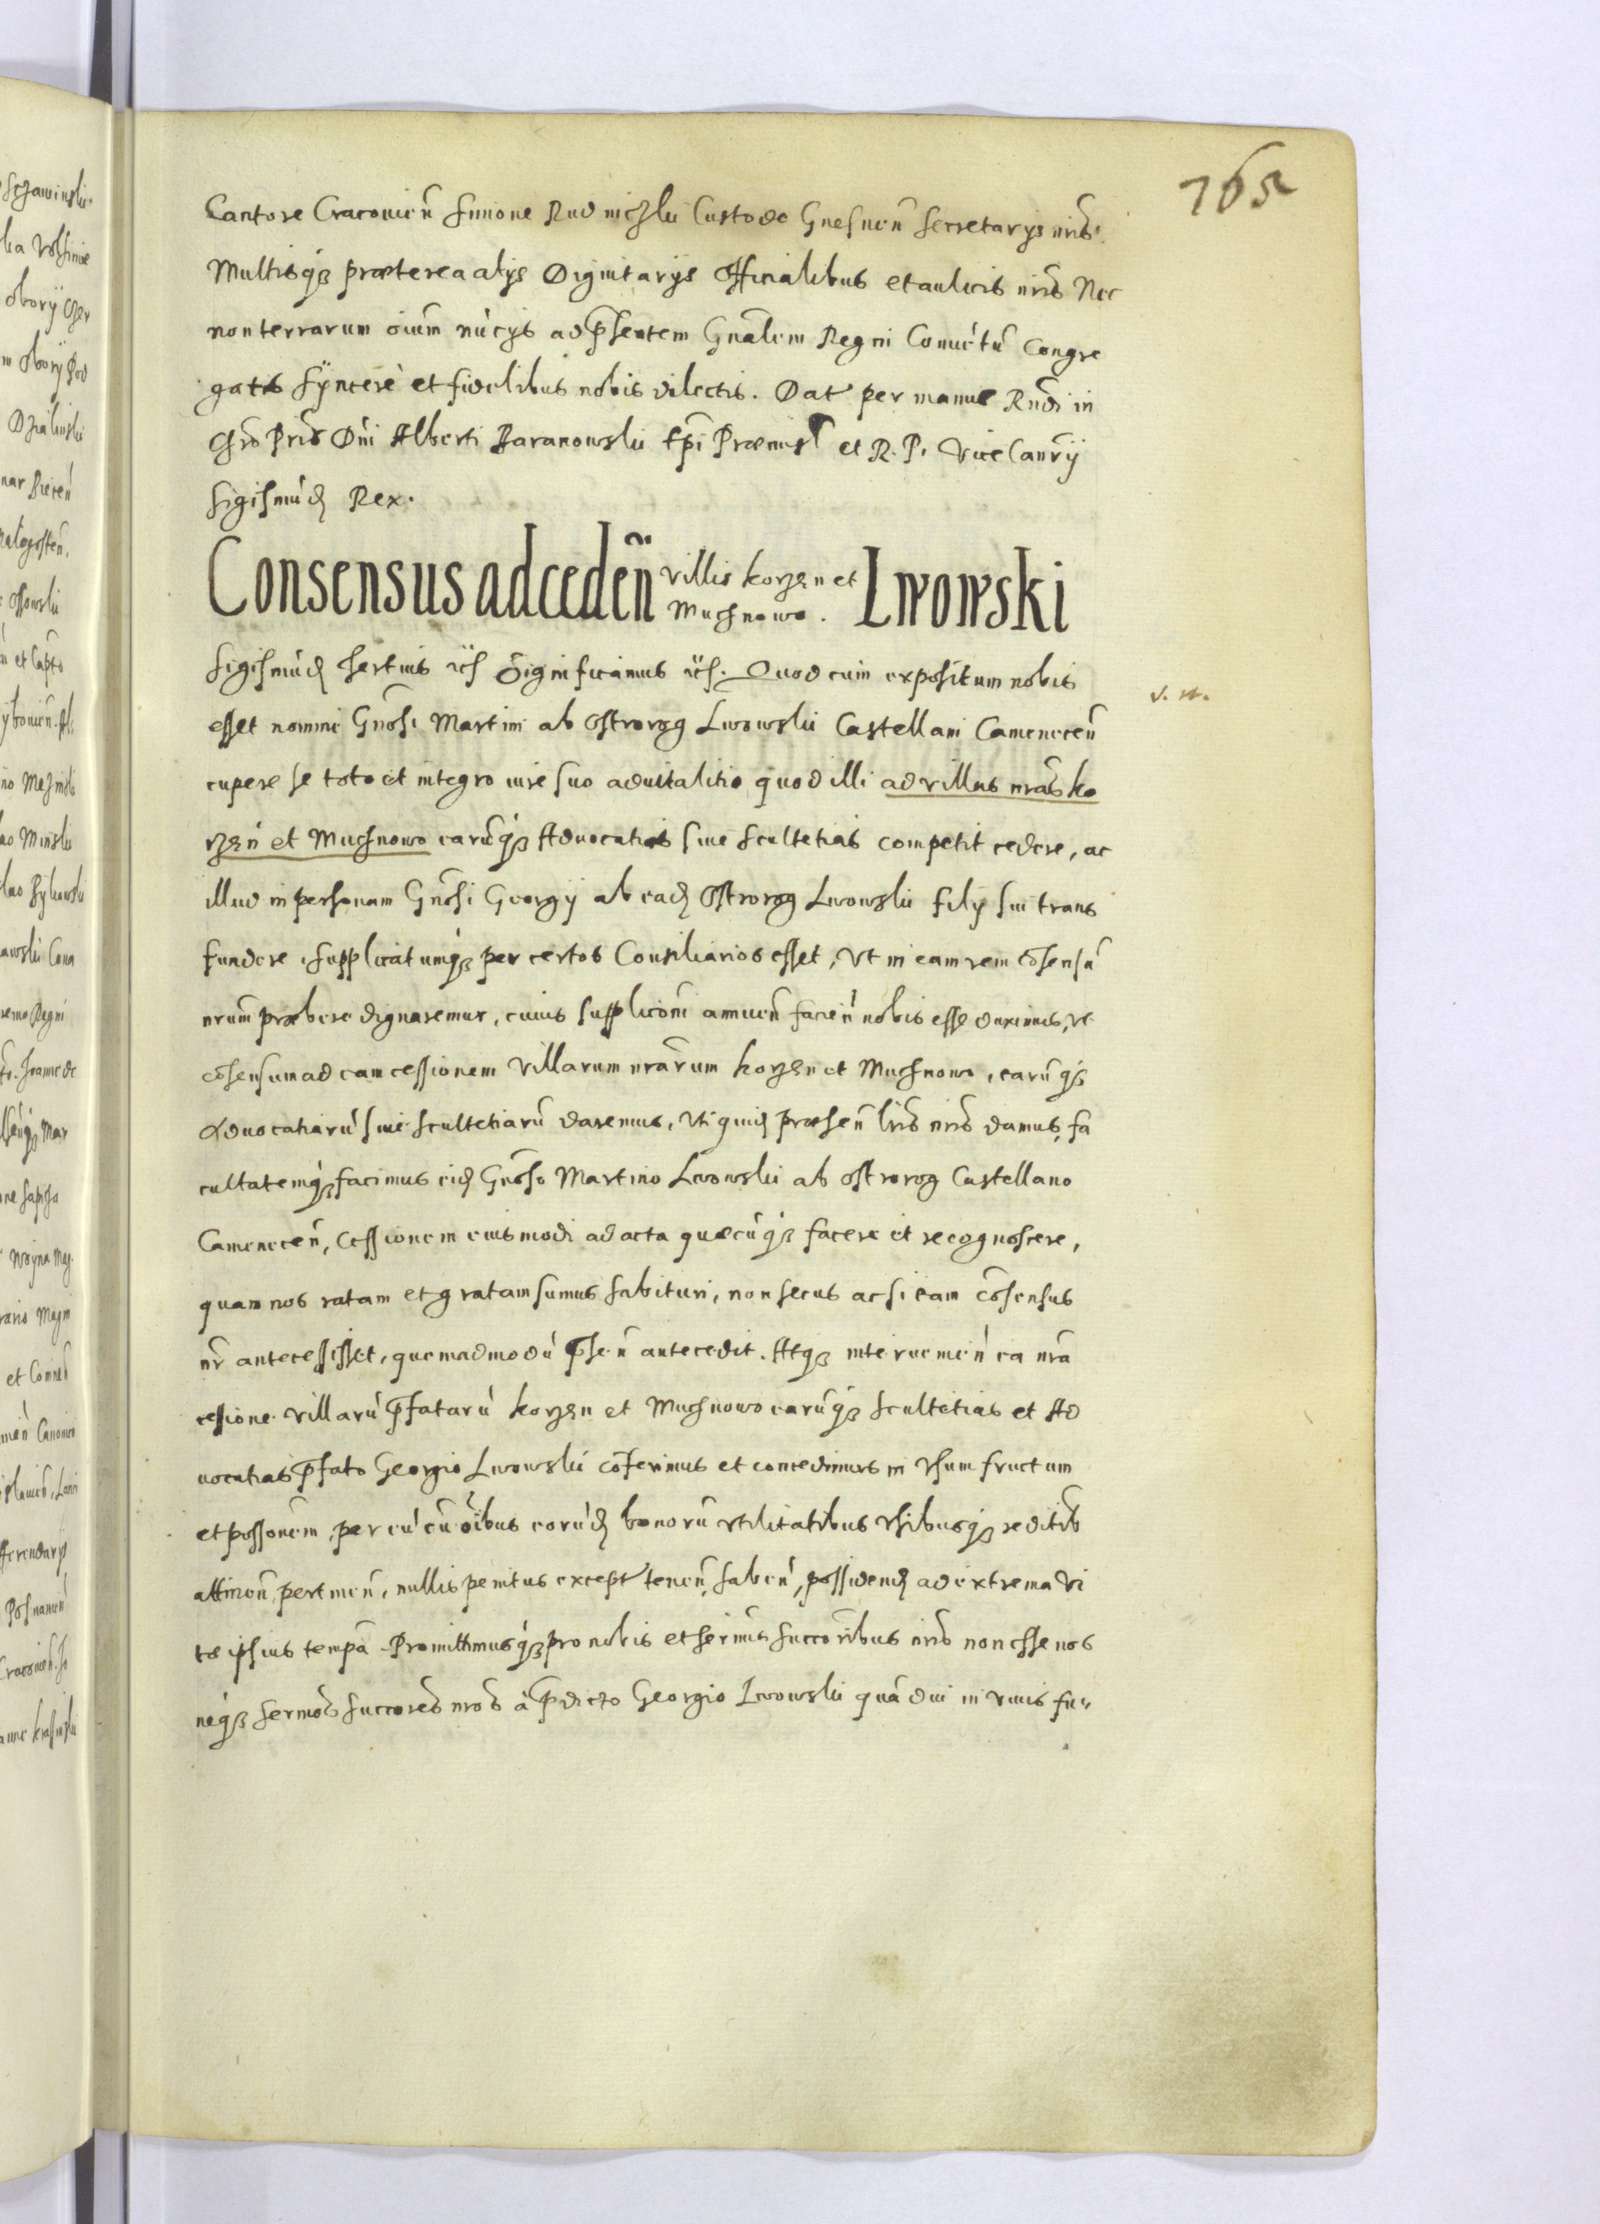 765
Cantore Cracovien̄ Simone Rudniczki Custode Gnesnen̄ Secretarijs nr̄is.
Multisq́ꝫ præterea alijs Dignitarijs Officialibus et aulicis nr̄is Nec
non terrarum oīum nūcijs ad p̄sentem Gnālem Regni Conuētū Congre
gatis sÿncerè et fidelibus nobis dilectis. Dat per manus Rn̄di in
Chr̄o Pr̄is Dn̄i Alberti Baranowski Ep̄i Præmisl et R. P. ViceCanr̄ij
Sigismūd Rex.
Consensus ad ceden̄ villis korzen et Muchnowo. Lwowski
Sigismūd tertius etc Significamus etc. Quod cum expositum nobis
v. n.
esset nomine Gn̄osi Martini ab Ostrorog Lwowski Castellani Camenecen̄
cupere se toto et integro iure suo aduitalitio quod illi ad villas nr̄as ko
rzen̄ et Muchnowo earūq́ꝫ Aduocatias siue scultetias competit cedere, ac
illud in personam Gn̄osi Georgij ab ead Ostrorog Lwowski filij sui trans
fundere, supplicatumq́ꝫ per certos Consiliarios esset, Vt in eam rem cōsensū
nr̄um præbere dignaremur, cuius supplicōni annuen̄ facien̄ nobis esse duximus, vt
cōsensum ad eam cessionem Villarum nr̄arum korzen et Muchnowo, earūq́ꝫ
Aduocatiarū siue scultetiarū daremus, Vti quid præsen̄ lr̄is nr̄is damus, fa
cultatemq́ꝫ facimus eid Gn̄oso Martino Lwowski ab ostrorog Castellano
Camenecen̄, Cessionem eiusmodi ad acta quæcūq́ꝫ facere et recognoscere,
quam nos ratam et gratam sumus habituri, non secus ac si eam cōsensus
nr̄ antecessisset, quemadmodū p̄sen̄ antecedit. Atq́ꝫ interuenien̄ ea nr̄a
cessione villarū p̄fatarū korzen et Muchnowo earūq́ꝫ scultetias et Ad
uocatias p̄fato Georgio Lwowski cōferimus et concedimus in Vsum fructum
et possōnem, per eū cū oībus eorūd bonorū vtilitatibus vsibusq́ꝫ reditib
attinen̄ pertinen̄, nullis penitus except tenen̄, haben̄, possidend ad extrema vi
tæ ipsius tempa. Promittimusq́ꝫ pro nobis et serīmis succorībus nr̄is non esse nos
neq́ꝫ sermos succores nros à p̄dicto Georgio Lwowski quādiu in viuis fu=